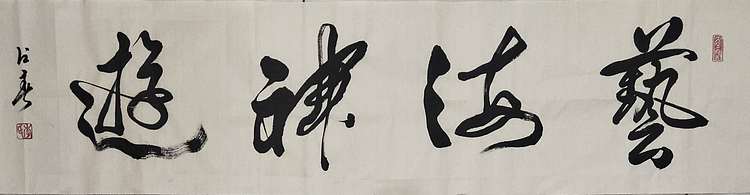 藝海神遊